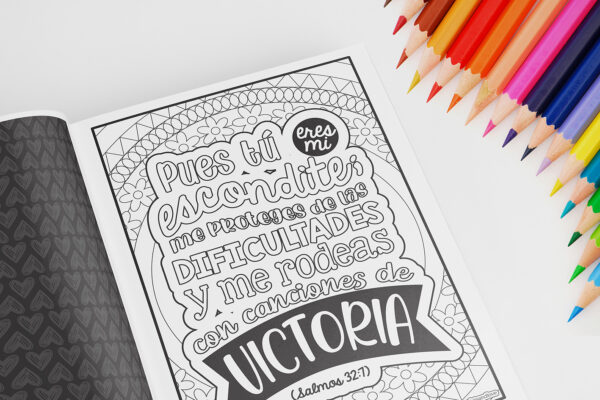 Pues tú eres mi
escondite;
me proteges de las
DIFICULTADES
y me rodeas
con canciones de
VICTORIA
(Salmos 32:7)